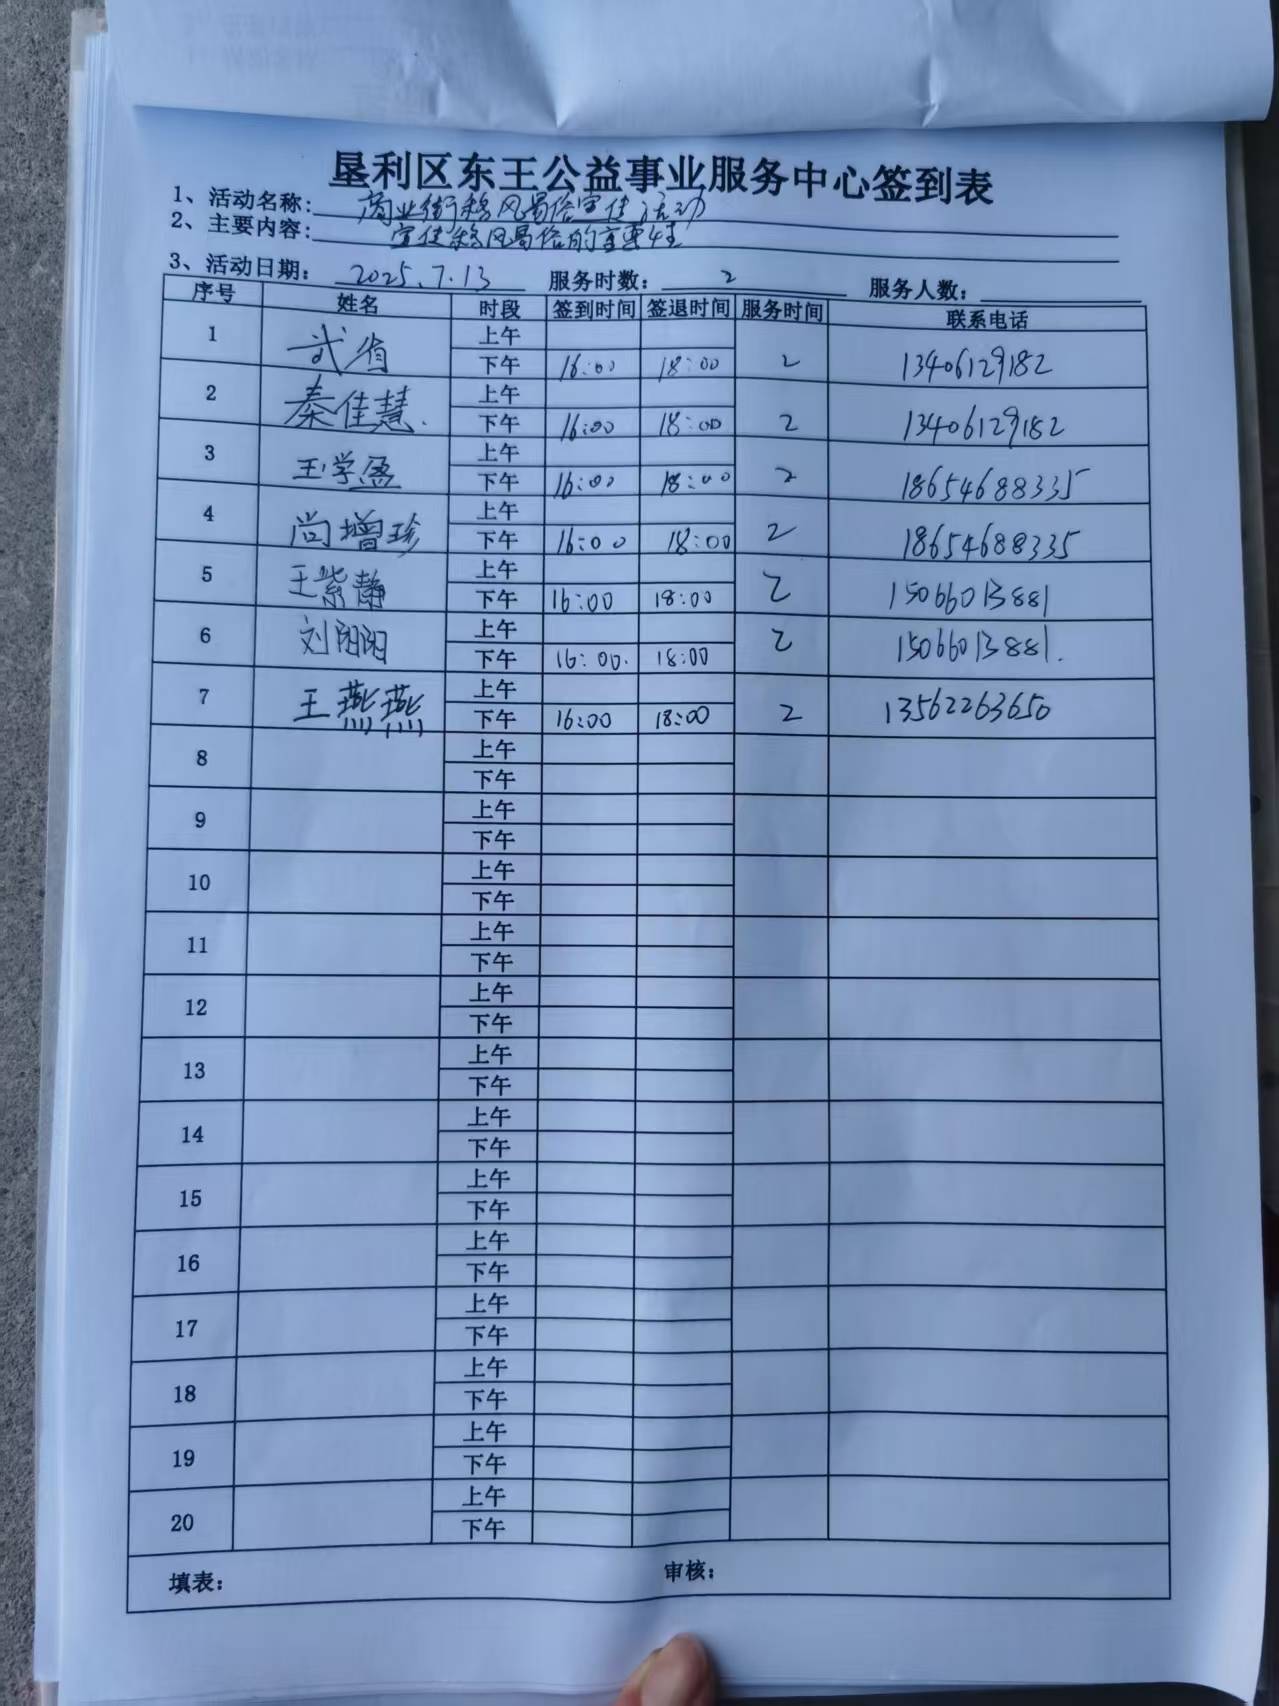 垦利区东王公益事业服务中心签到表
1、活动名称: 商业街移风易俗宣传活动
2、主要内容: 宣传移风易俗的重要性
3、活动日期: 2025.7.13 服务时数: 2 服务人数:
序号 姓名 时段 签到时间 签退时间 服务时间 联系电话
1 武省 上午
下午 16:00 18:00 2 13406129182
2 秦佳慧. 上午
下午 16:00 18:00 2 13406129182
3 王学盈 上午
下午 16:00 18:00 2 18654688335
4 尚增珍 上午
下午 16:00 18:00 2 18654688335
5 王紫静 上午
下午 16:00 18:00 2 15066013881
6 刘阳阳 上午
下午 16:00. 18:00 2 15066013881.
7 王燕燕 上午
下午 16:00 18:00 2 13562263650
8 上午
下午
9 上午
下午
10 上午
下午
11 上午
下午
12 上午
下午
13 上午
下午
14 上午
下午
15 上午
下午
16 上午
下午
17 上午
下午
18 上午
下午
19 上午
下午
20 上午
下午
填表: 审核: